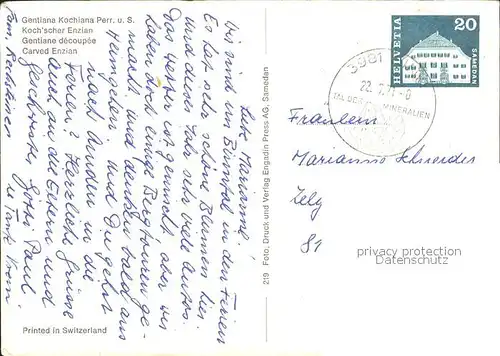 Gentiana Kochiana Perr. u. S.
Koch'scher Enzian
Gentiane découpée
Carved Enzian
Liebe Marianne
Wir sind im Binntal in den Ferien
Es hat sehr schöne Blumen hier
und dieses Jahr sehr viele Autos.
Das Wetter ist gemischt aber wir
haben doch einige Bergtouren ge-
macht und denken bald ans
Heimgehen. Und Du gehst
nach in die
Ferien? Herzliche Grüsse
auch an die Eltern und
Geschwister, Götti Paul
u. Tante
Printed in Switzerland
219 Foto, Druck und Verlag Engadin Press AG, Samedan
HELVETIA
20
SAMEDAN
3981
22. 7. 71 - 8
TAL DER MINERALIEN
Fräulein
Marianne Schneider
Zelg
SZ
privacy protection
Datenschutz